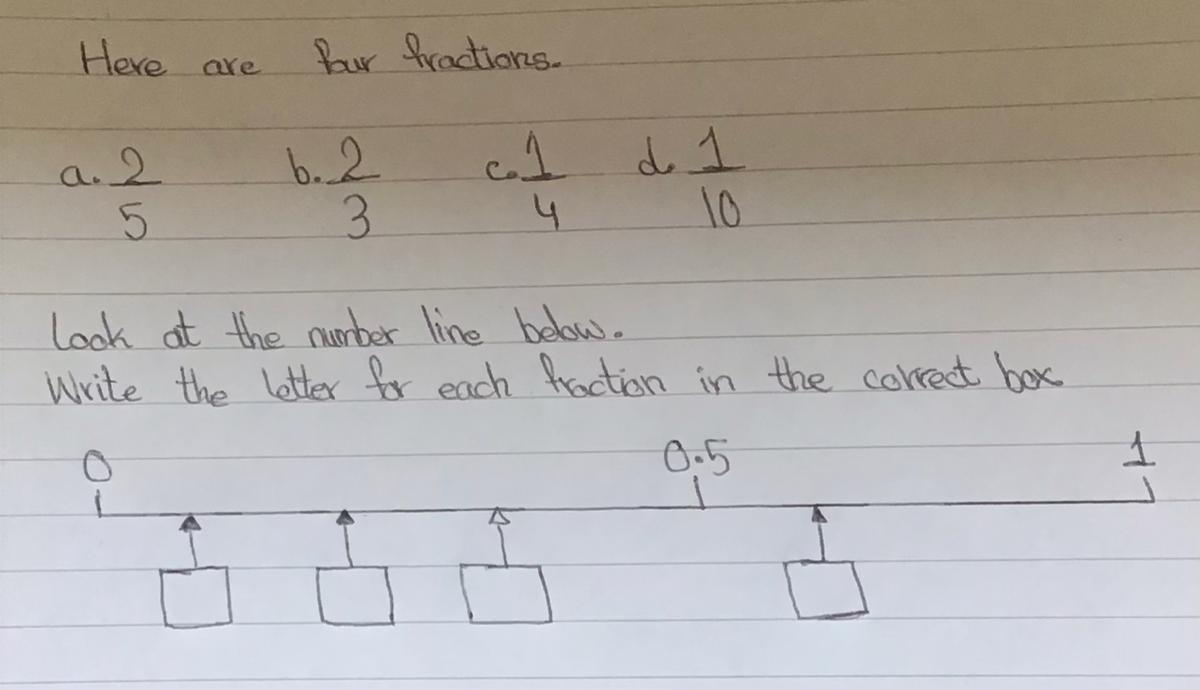 Here are four fractions.
a. 2/5 b. 2/3 c. 1/4 d. 1/10
Look at the number line below.
Write the letter for each fraction in the correct box
0 0.5 1